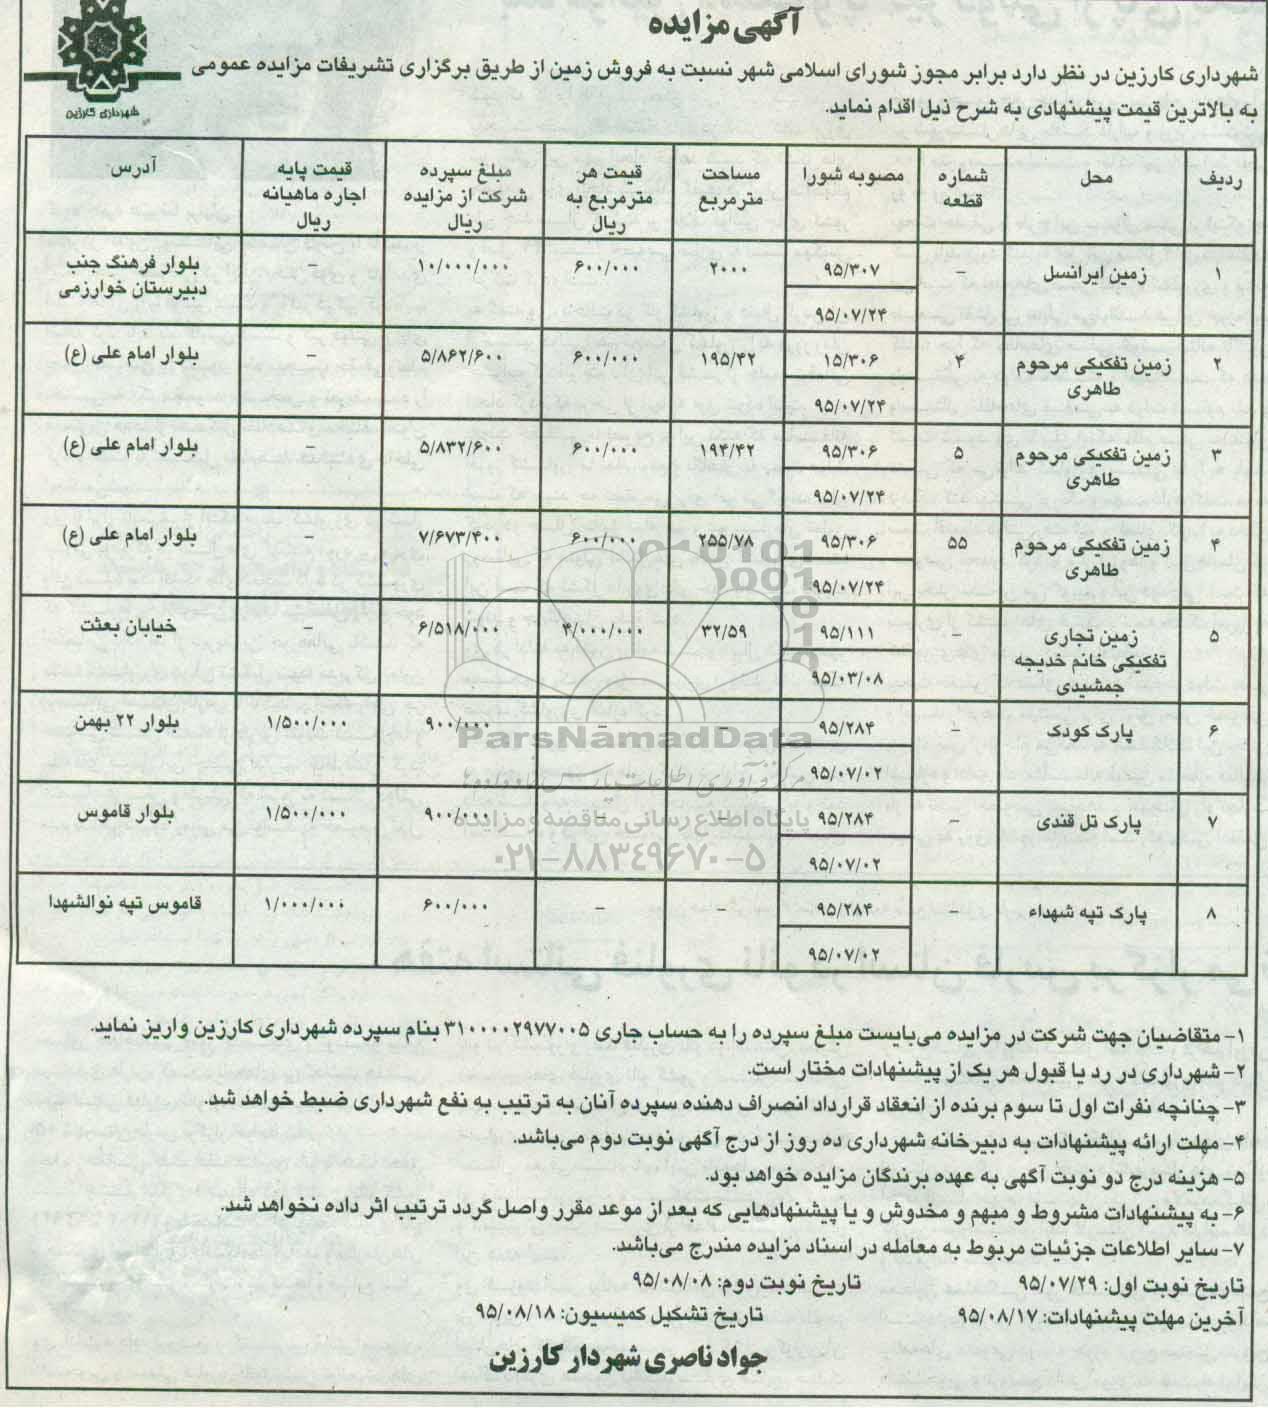 آگهی مزایده
شهرداری کارزین
شهرداری کارزین در نظر دارد برابر مجوز شورای اسلامی شهر نسبت به فروش زمین از طریق برگزاری تشریفات مزایده عمومی
به بالاترین قیمت پیشنهادی به شرح ذیل اقدام نماید.
ردیف | محل | شماره قطعه | مصوبه شورا | مساحت مترمربع | قیمت هر مترمربع به ریال | مبلغ سپرده شرکت از مزایده ریال | قیمت پایه اجاره ماهیانه ریال | آدرس
۱ | زمین ایرانسل | – | ۹۵/۳۰۷ ۹۵/۰۷/۲۴ | ۲۰۰۰ | ۶۰۰/۰۰۰ | ۱۰/۰۰۰/۰۰۰ | – | بلوار فرهنگ جنب دبیرستان خوارزمی
۲ | زمین تفکیکی مرحوم طاهری | ۴ | ۱۵/۳۰۶ ۹۵/۰۷/۲۴ | ۱۹۵/۴۲ | ۶۰۰/۰۰۰ | ۵/۸۶۲/۶۰۰ | – | بلوار امام علی (ع)
۳ | زمین تفکیکی مرحوم طاهری | ۵ | ۹۵/۳۰۶ ۹۵/۰۷/۲۴ | ۱۹۴/۴۲ | ۶۰۰/۰۰۰ | ۵/۸۳۲/۶۰۰ | – | بلوار امام علی (ع)
۴ | زمین تفکیکی مرحوم طاهری | ۵۵ | ۹۵/۳۰۶ ۹۵/۰۷/۲۴ | ۲۵۵/۷۸ | ۶۰۰/۰۰۰ | ۷/۶۷۳/۴۰۰ | – | بلوار امام علی (ع)
۵ | زمین تجاری تفکیکی خانم خدیجه جمشیدی | – | ۹۵/۱۱۱ ۹۵/۰۳/۰۸ | ۳۲/۵۹ | ۴/۰۰۰/۰۰۰ | ۶/۵۱۸/۰۰۰ | – | خیابان بعثت
۶ | پارک کودک | – | ۹۵/۲۸۴ ۹۵/۰۷/۰۲ | – | – | ۹۰۰/۰۰۰ | ۱/۵۰۰/۰۰۰ | بلوار ۲۲ بهمن
۷ | پارک تل قندی | – | ۹۵/۲۸۴ ۹۵/۰۷/۰۲ | – | – | ۹۰۰/۰۰۰ | ۱/۵۰۰/۰۰۰ | بلوار قاموس
۸ | پارک تپه شهداء | – | ۹۵/۲۸۴ ۹۵/۰۷/۰۲ | – | – | ۶۰۰/۰۰۰ | ۱/۰۰۰/۰۰۰ | قاموس تپه نوالشهدا
ParsNamadData
پایگاه اطلاع رسانی مناقصه و مزایده
۰۲۱-۸۸۳۴۹۶۷۰-۵
۱- متقاضیان جهت شرکت در مزایده می‌بایست مبلغ سپرده را به حساب جاری ۳۱۰۰۰۰۲۹۷۷۰۰۵ بنام سپرده شهرداری کارزین واریز نماید.
۲- شهرداری در رد یا قبول هر یک از پیشنهادات مختار است.
۳- چنانچه نفرات اول تا سوم برنده از انعقاد قرارداد انصراف دهنده سپرده آنان به ترتیب به نفع شهرداری ضبط خواهد شد.
۴- مهلت ارائه پیشنهادات به دبیرخانه شهرداری ده روز از درج آگهی نوبت دوم می‌باشد.
۵- هزینه درج دو نوبت آگهی به عهده برندگان مزایده خواهد بود.
۶- به پیشنهادات مشروط و مبهم و مخدوش و یا پیشنهادهایی که بعد از موعد مقرر واصل گردد ترتیب اثر داده نخواهد شد.
۷- سایر اطلاعات جزئیات مربوط به معامله در اسناد مزایده مندرج می‌باشد.
تاریخ نوبت اول: ۹۵/۰۷/۲۹ تاریخ نوبت دوم: ۹۵/۰۸/۰۸
آخرین مهلت پیشنهادات: ۹۵/۰۸/۱۷ تاریخ تشکیل کمیسیون: ۹۵/۰۸/۱۸
جواد ناصری شهردار کارزین